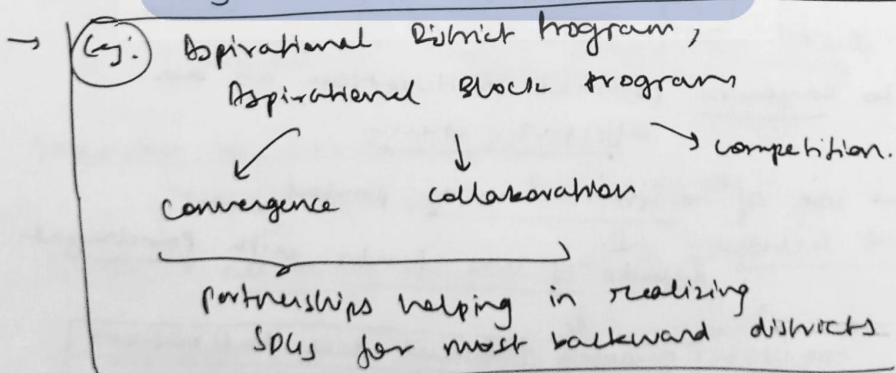 → Eg: Aspirational District Program,
Aspirational Block Program
convergence collaboration → competition.
Partnerships helping in realizing
SDGs for most backward districts